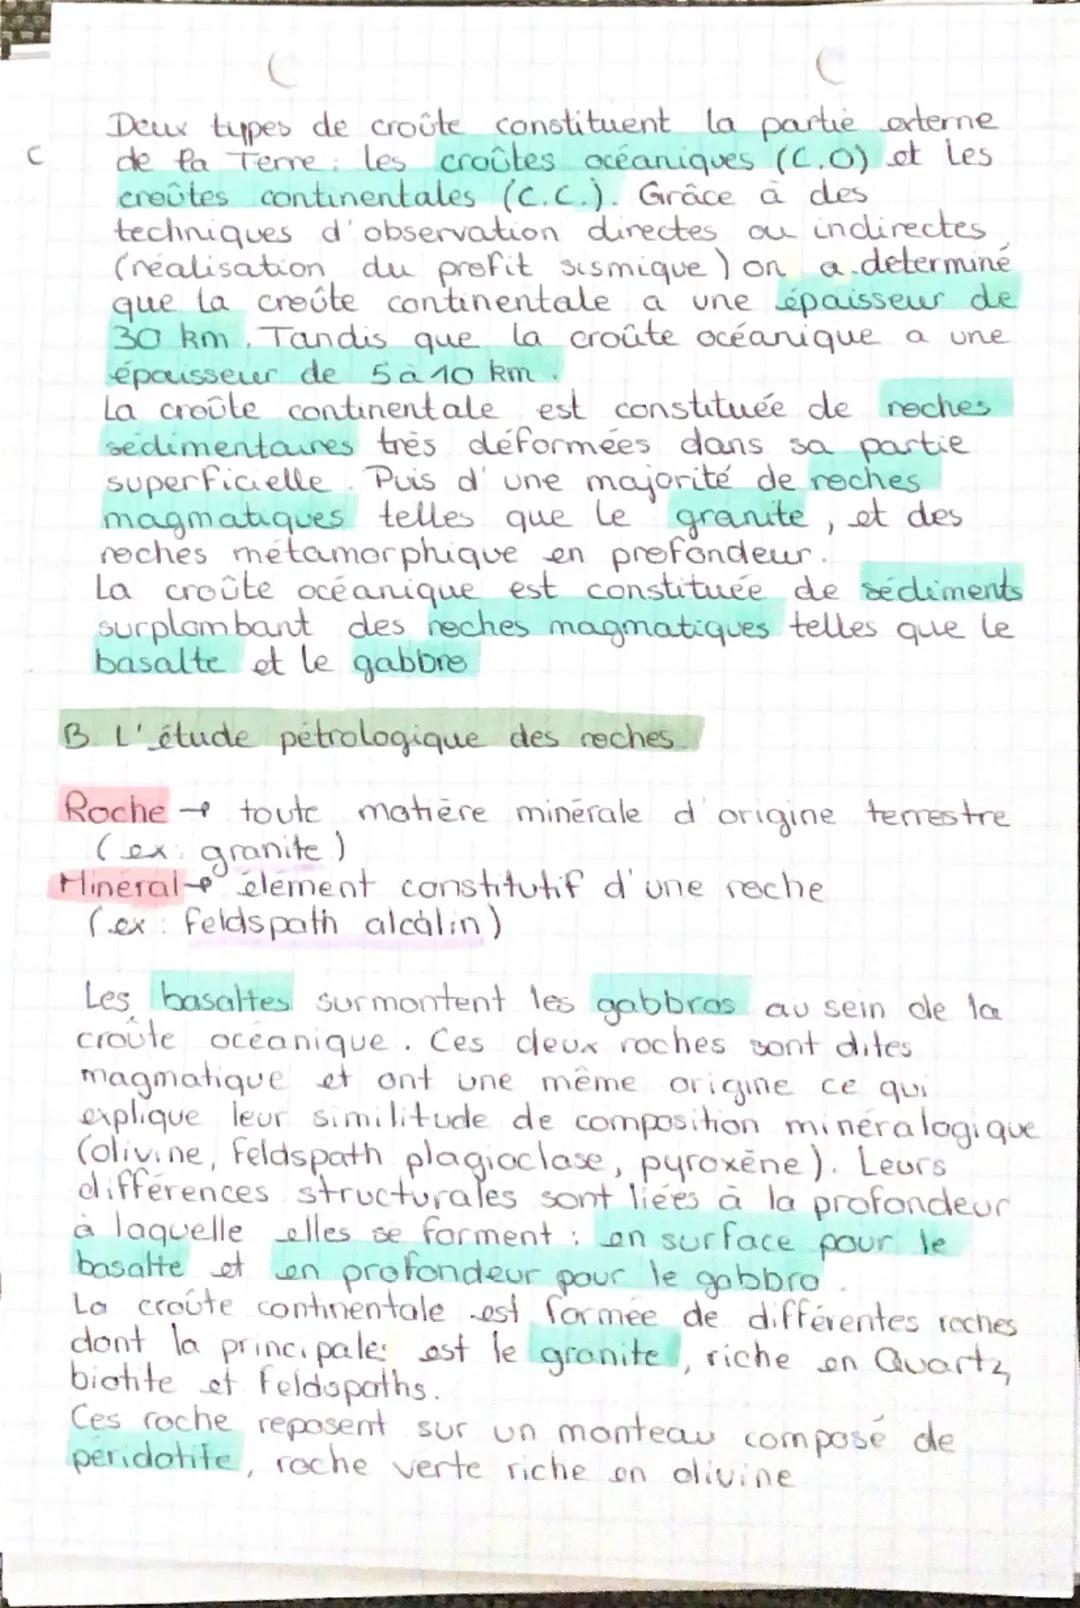 Deux types de croûte constituent la partie externe
de la Terre : les croûtes océaniques (C.O) et les
croûtes continentales (C.C.). Grâce à des
techniques d'observation directes ou indirectes
(réalisation du profit sismique) on a determiné
que la croûte continentale a une épaisseur de
30 km. Tandis que la croûte océanique a une
épaisseur de 5 à 10 km.
La croûte continentale est constituée de roches
sédimentaires très déformées dans sa partie
superficielle. Puis d'une majorité de roches
magmatiques telles que le granite, et des
roches métamorphique en profondeur.
La croûte océanique est constituée de sédiments
surplombant des roches magmatiques telles que le
basalte et le gabbro
B. L'étude pétrologique des roches
Roche → toute matière minérale d'origine terrestre
(ex: granite)
Minéral → élément constitutif d'une roche
(ex : feldspath alcalin)
Les basaltes surmontent les gabbros au sein de la
croûte océanique. Ces deux roches sont dites
magmatique et ont une même origine ce qui
explique leur similitude de composition minéralogique
(olivine, feldspath plagioclase, pyroxène). Leurs
différences structurales sont liées à la profondeur
à laquelle elles se forment : en surface pour le
basalte et en profondeur pour le gabbro.
La croûte continentale est formée de différentes roches
dont la principale est le granite, riche en Quartz,
biotite et feldspaths.
Ces roche reposent sur un manteau composé de
péridotite, roche verte riche en olivine